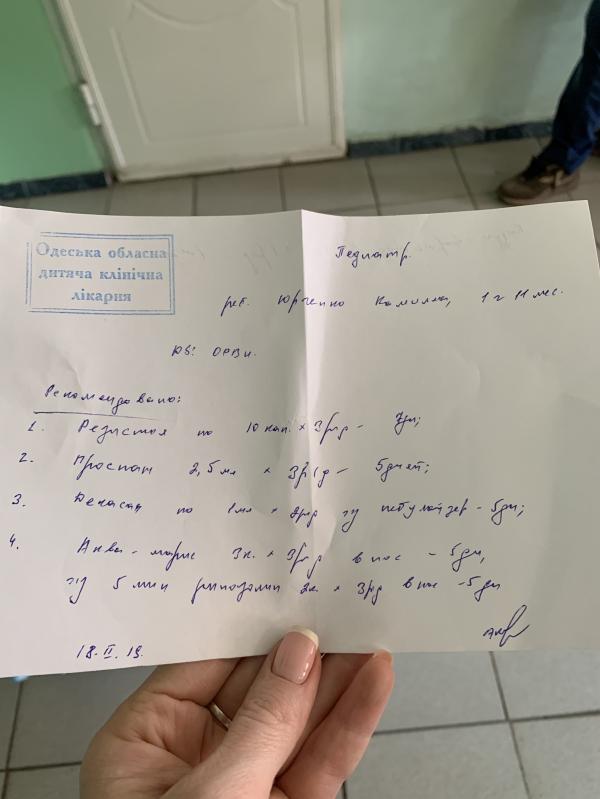 Одеська обласна
дитяча клінічна
лікарня
Педиатр.
реб. Юрченко Камилла, 1 г 11 мес.
DS: ОРВИ.
Рекомендовано:
1. Резистол по 10 кап. × 3 р/д -
2. Проспан 2,5 мл × 3 р/д - 5 дней;
3. Декасан по 1 мл × р/д ч/з небулайзер - 5 дн;
4. Аква-марис 3 к. × 3 р/д в нос - 5 дн,
ч/з 5 мин 2 к. × 3 р/д в нос - 5 дн
18.II.19.